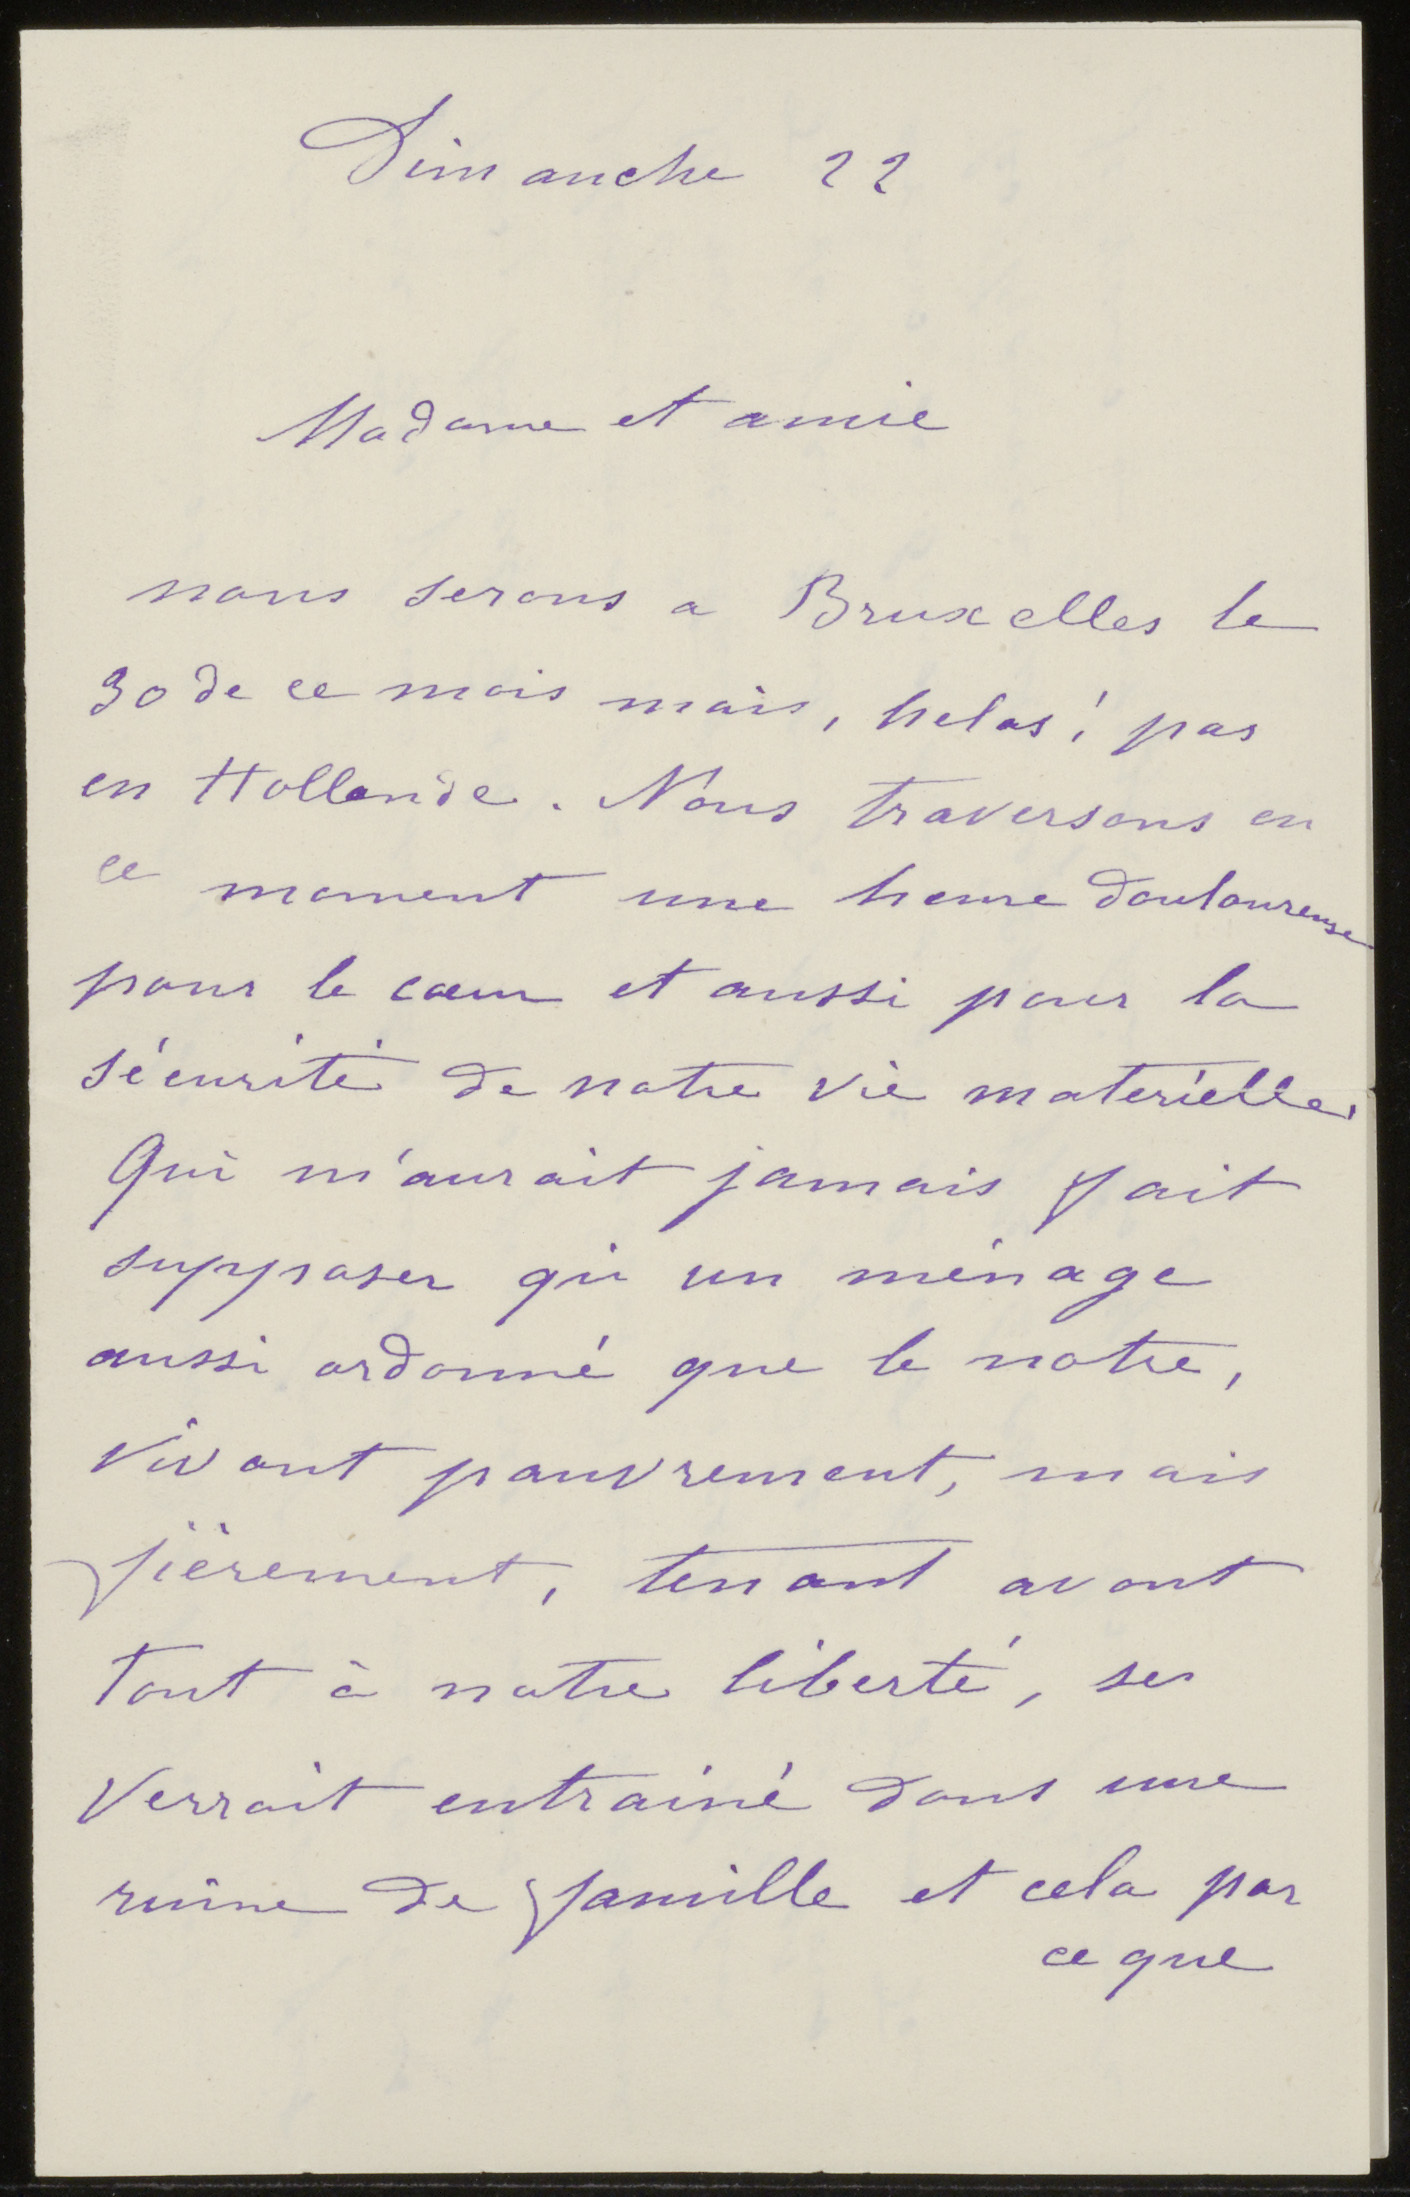 Dimanche 22
Madame et amie
nous serons a Bruxelles le
30 de ce mois mais, helas! pas
en Hollande. Nous traversons en
ce moment une heure douloureuse
pour le cœur et aussi pour la
sécurité de notre vie materielle.
Qui m'aurait jamais fait
supposer qu'un ménage
aussi ordonné que le notre,
vivant pauvrement, mais
fièrement, tenant avant
tout à notre liberté, se
verrait entrainé dans une
ruine de famille et cela par
ce que